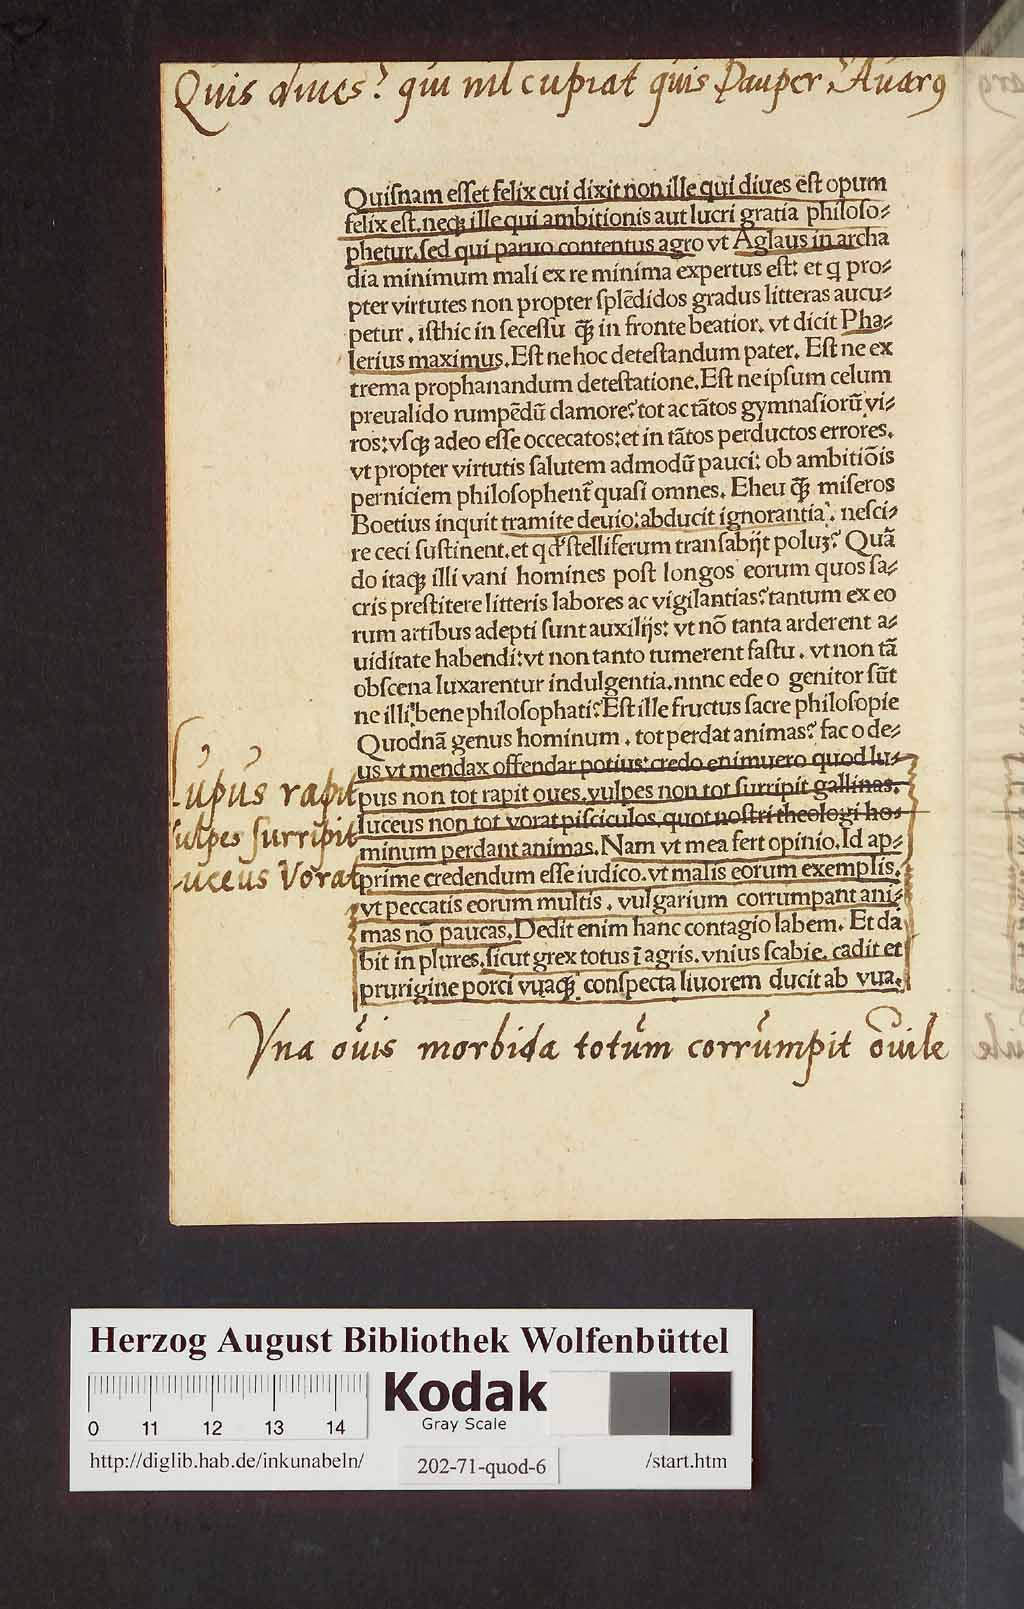 Quis diues? qui nil cupiat quis Pauper? Auarꝰ
Quiſnam eſſet felix cui dixit non ille qui diues eſt opum
felix eſt. neqꝫ ille qui ambitionis aut lucri gratia philoſo⸗
phetur. ſed qui paruo contentus agro vt Aglaus in archa
dia minimum mali ex re minima expertus eſt: et q pro⸗
pter virtutes non propter ſplēdidos gradus litteras aucu⸗
petur . iſthic in ſeceſſu qꝫ̄ in fronte beatior. vt dicit Pha⸗
lerius maximus. Eſt ne hoc deteſtandum pater. Eſt ne ex
trema prophanandum deteſtatione. Eſt ne ipſum celum
preualido rumpēdū clamore? tot ac tātos gymnaſiorū vi⸗
ros: vſqꝫ adeo eſſe occecatos: et in tātos perductos errores.
vt propter virtutis ſalutem admodū pauci: ob ambitiōis
perniciem philoſophent̄ quaſi omnes. Eheu qꝫ̄ miſeros
Boetius inquit tramite deuio: abducit ignorantia . neſci⸗
re ceci ſuſtinent. et qd̓ ſtelliferum tranſabijt poluꝫ? Quā
do itaqꝫ illi vani homines poſt longos eorum quos ſa⸗
cris preſtitere litteris labores ac vigilantias? tantum ex eo
rum artibus adepti ſunt auxilijs: vt nō tanta arderent a⸗
uiditate habendi: vt non tanto tumerent faſtu . vt non tā
obſcena luxarentur indulgentia. nnnc ede o genitor ſūt
ne illi bene philoſophati? Eſt ille fructus ſacre philoſopie
Quodnā genus hominum . tot perdat animas? fac o de⸗
us vt mendax offendar potius: credo enimuero quod lu⸗
pus non tot rapit oues. vulpes non tot ſurripit gallinas.
luceus non tot vorat piſciculos. quot noſtri theologi ho⸗
minum perdant animas. Nam vt mea fert opinio. Id ap⸗
prime credendum eſſe iudico. vt malis eorum exemplis.
vt peccatis eorum multis . vulgarium corrumpant ani⸗
mas nō paucas. Dedit enim hanc contagio labem. Et da
bit in plures. ſicut grex totus ī agris. vnius ſcabie. cadit et
prurigine porci vuaqꝫ conſpecta liuorem ducit ab vua.
Lupus rapit
Vulpes ſurripit
Luceus Vorat
Vna ouis morbida totum corrumpit Ouile
Herzog August Bibliothek Wolfenbüttel
0 11 12 13 14
Kodak
Gray Scale
http://diglib.hab.de/inkunabeln/
202-71-quod-6
/start.htm